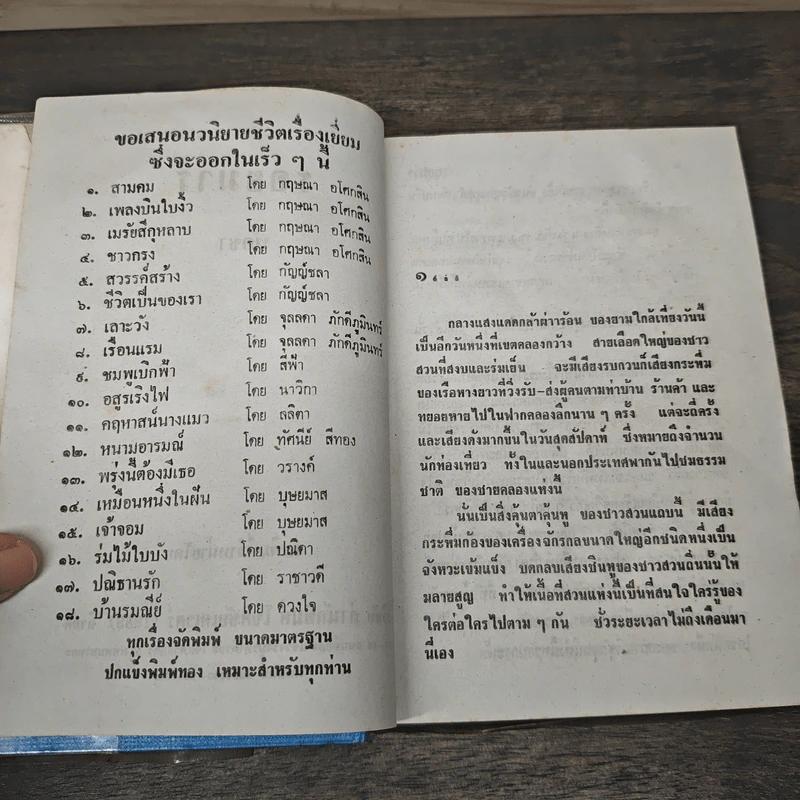 ขอเสนอนวนิยายชีวิตเรื่องเยี่ยม
ซึ่งจะออกในเร็ว ๆ นี้
๑. สามคม โดย กฤษณา อโศกสิน
๒. เพลงบินใบงิ้ว โดย กฤษณา อโศกสิน
๓. เมรัยสีกุหลาบ โดย กฤษณา อโศกสิน
๔. ชาวกรง โดย กฤษณา อโศกสิน
๕. สวรรค์สร้าง โดย กัญญ์ชลา
๖. ชีวิตเป็นของเรา โดย กัญญ์ชลา
๗. เลาะวัง โดย จุลลดา ภักดีภูมินทร์
๘. เรือนแรม โดย จุลลดา ภักดีภูมินทร์
๙. ชมพูเบิกฟ้า โดย สีฟ้า
๑๐. อสูรเริงไฟ โดย นาวิกา
๑๑. คฤหาสน์นางแมว โดย ลลิตา
๑๒. หนามอารมณ์ โดย ทัศนีย์ สีทอง
๑๓. พรุ่งนี้ต้องมีเธอ โดย วรางค์
๑๔. เหมือนหนึ่งในฝัน โดย บุษยมาส
๑๕. เจ้าจอม โดย บุษยมาส
๑๖. ร่มไม้ใบบัง โดย ปณิตา
๑๗. ปณิธานรัก โดย ราชาวดี
๑๘. บ้านรมณีย์ โดย ดวงใจ
ทุกเรื่องจัดพิมพ์ ขนาดมาตรฐาน
ปกแข็งพิมพ์ทอง เหมาะสำหรับทุกท่าน
๑...
กลางแสงแดดกล้าผ่าวร้อน ของยามใกล้เที่ยงวันนี้
เป็นอีกวันหนึ่งที่เขตคลองกว้าง สายเลือดใหญ่ของชาว
สวนที่สงบและร่มเย็น จะมีเสียงรบกวนก็เสียงกระหึ่ม
ของเรือหางยาวที่วิ่งรับ-ส่งผู้คนตามท่าบ้าน ร้านค้า และ
ทยอยหายไปในฟากคลองอีกนาน ๆ ครั้ง แต่จะถี่ครั้ง
และเสียงดังมากขึ้นในวันสุดสัปดาห์ ซึ่งหมายถึงจำนวน
นักท่องเที่ยว ทั้งในและนอกประเทศพากันไปชมธรรม
ชาติ ของชายคลองแห่งนี้
นั่นเป็นสิ่งคุ้นตาคุ้นหู ของชาวสวนแถบนี้ มีเสียง
กระหึ่มก้องของเครื่องจักรกลขนาดใหญ่อีกชนิดหนึ่งเป็น
จังหวะเข้มแข็ง บดกลบเสียงชินหูของชาวสวนถิ่นนั้นให้
มลายสูญ ทำให้เนื้อที่สวนแห่งนี้เป็นที่สนใจใคร่รู้ของ
ใครต่อใครไปตาม ๆ กัน ชั่วระยะเวลาไม่ถึงเดือนมา
นี่เอง